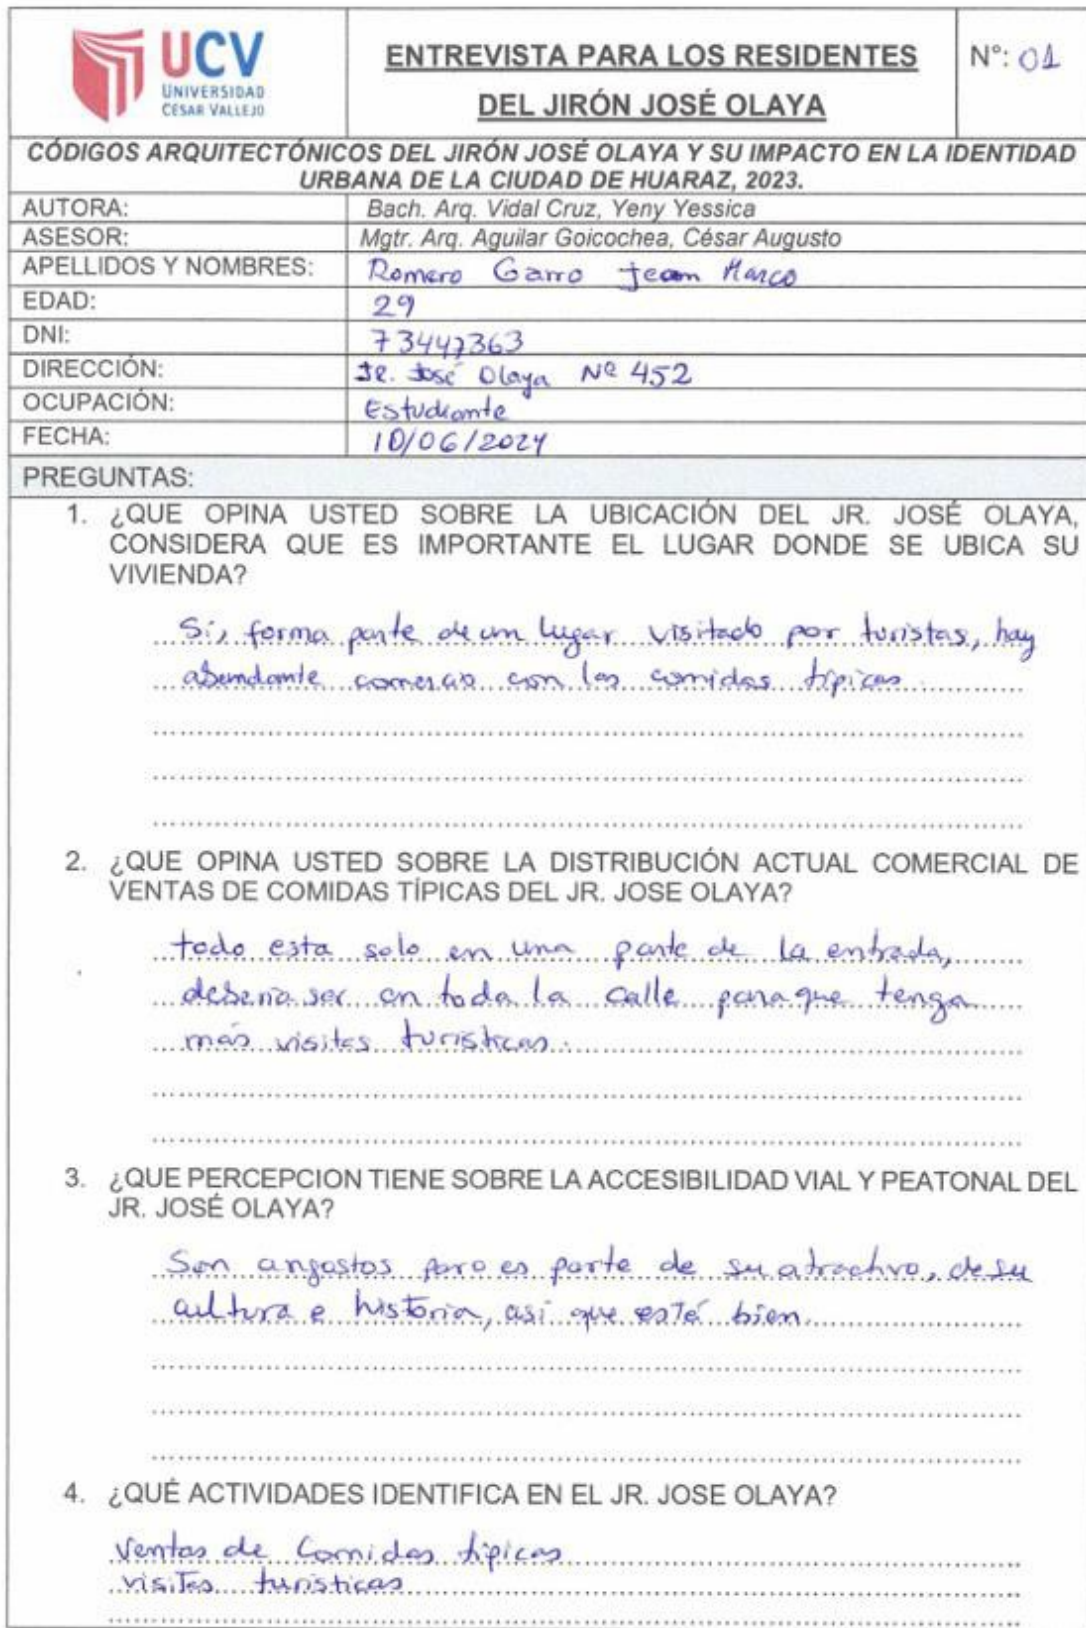 UCV
UNIVERSIDAD
CÉSAR VALLEJO
ENTREVISTA PARA LOS RESIDENTES
DEL JIRÓN JOSÉ OLAYA
N°: 01
CÓDIGOS ARQUITECTÓNICOS DEL JIRÓN JOSÉ OLAYA Y SU IMPACTO EN LA IDENTIDAD
URBANA DE LA CIUDAD DE HUARAZ, 2023.
AUTORA: Bach. Arq. Vidal Cruz, Yeny Yessica
ASESOR: Mgtr. Arq. Aguilar Goicochea, César Augusto
APELLIDOS Y NOMBRES: Romero Garro Jean Marco
EDAD: 29
DNI: 73447363
DIRECCIÓN: JR. José Olaya Nº 452
OCUPACIÓN: Estudiante
FECHA: 10/06/2024
PREGUNTAS:
1. ¿QUE OPINA USTED SOBRE LA UBICACIÓN DEL JR. JOSÉ OLAYA,
CONSIDERA QUE ES IMPORTANTE EL LUGAR DONDE SE UBICA SU
VIVIENDA?
Si, forma parte de un lugar visitado por turistas, hay
abundante comercio con las comidas típicas.
2. ¿QUE OPINA USTED SOBRE LA DISTRIBUCIÓN ACTUAL COMERCIAL DE
VENTAS DE COMIDAS TÍPICAS DEL JR. JOSE OLAYA?
todo esta solo en una parte de la entrada,
deberia ser en toda la calle para que tenga
más visitas turísticas.
3. ¿QUE PERCEPCION TIENE SOBRE LA ACCESIBILIDAD VIAL Y PEATONAL DEL
JR. JOSÉ OLAYA?
Son angostos pero es parte de su atractivo, de su
cultura e historia, asi que esté bien.
4. ¿QUÉ ACTIVIDADES IDENTIFICA EN EL JR. JOSE OLAYA?
Ventas de Comidas típicas
visitas turísticas